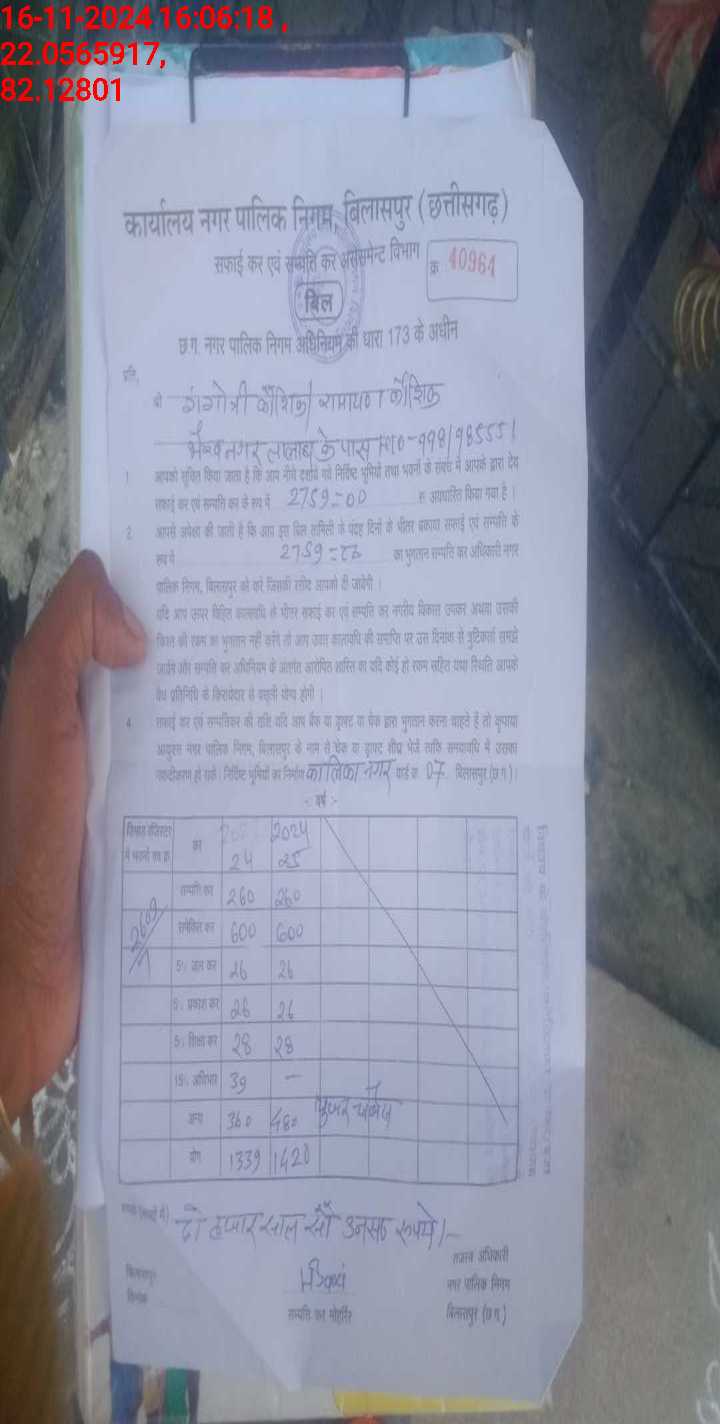 16-11-2024 16:06:18 ,
22.0565917,
82.12801
कार्यालय नगर पालिक निगम, बिलासपुर (छत्तीसगढ़)
सफाई कर एवं सम्पत्ति कर असेसमेन्ट विभाग
क्र. 40964
बिल
छ.ग. नगर पालिक निगम अधिनियम की धारा 173 के अधीन
प्रति,
श्री गंगोत्री कौशिक/ रामायण कौशिक
नगर तालाब के पास
1 आपको सूचित किया जाता है कि आप नीचे दर्शाये गये निर्दिष्ट भूमियों तथा भवनों के संबंध में आपके द्वारा देय
सफाई कर एवं सम्पत्ति कर के रूप में 2759=00 रू अवधारित किया गया है।
2 आपसे अपेक्षा की जाती है कि आप इस बिल तामिली के पंद्रह दिनों के भीतर बकाया सफाई एवं सम्पत्ति के
रूप में 2759= का भुगतान सम्पत्ति कर अधिकारी नगर
पालिक निगम, बिलासपुर को करे जिसकी रसीद आपको दी जावेगी।
यदि आप ऊपर विहित कालावधि के भीतर सफाई कर एवं सम्पत्ति कर नगरीय विकास उपकर अथवा उसकी
किश्त की रकम का भुगतान नहीं करेंगे तो आप उक्त कालावधि की समाप्ति पर उस दिनांक से त्रुटिकर्ता समझे
जाएंगे और सम्पत्ति कर अधिनियम के अंतर्गत आरोपित शास्ति का यदि कोई हो रकम सहित यथा स्थिति आपके
वैध प्रतिनिधि के किरायेदार से वसूली योग्य होगी।
4 सफाई कर एवं सम्पत्तिकर की राशि यदि आप बैंक या ड्राफ्ट या चेक द्वारा भुगतान करना चाहते हैं तो कृपया
आयुक्त नगर पालिक निगम, बिलासपुर के नाम से चेक या ड्राफ्ट शीघ्र भेजें ताकि समयावधि में उसका
नकदीकरण हो सके। निर्दिष्ट भूमियों का निर्माण कालिका नगर वार्ड क्र. 07 बिलासपुर (छ.ग.)।
-: वर्ष :-
कर 24 2024 25
सम्पत्ति कर 260 260
2609 समेकित कर 600 600
5% जल कर 26 26
5% प्रकाश कर 26 26
5% शिक्षा कर 28 28
15% अधिभार 39 —
अन्य 360 480 यूजर चार्जेज
योग 1339 1420
दो हजार सात सौ उनसठ रूपये/-
बिलासपुर
दिनांक
सम्पत्ति कर मोहर्रिर
राजस्व अधिकारी
नगर पालिक निगम
बिलासपुर (छ.ग.)